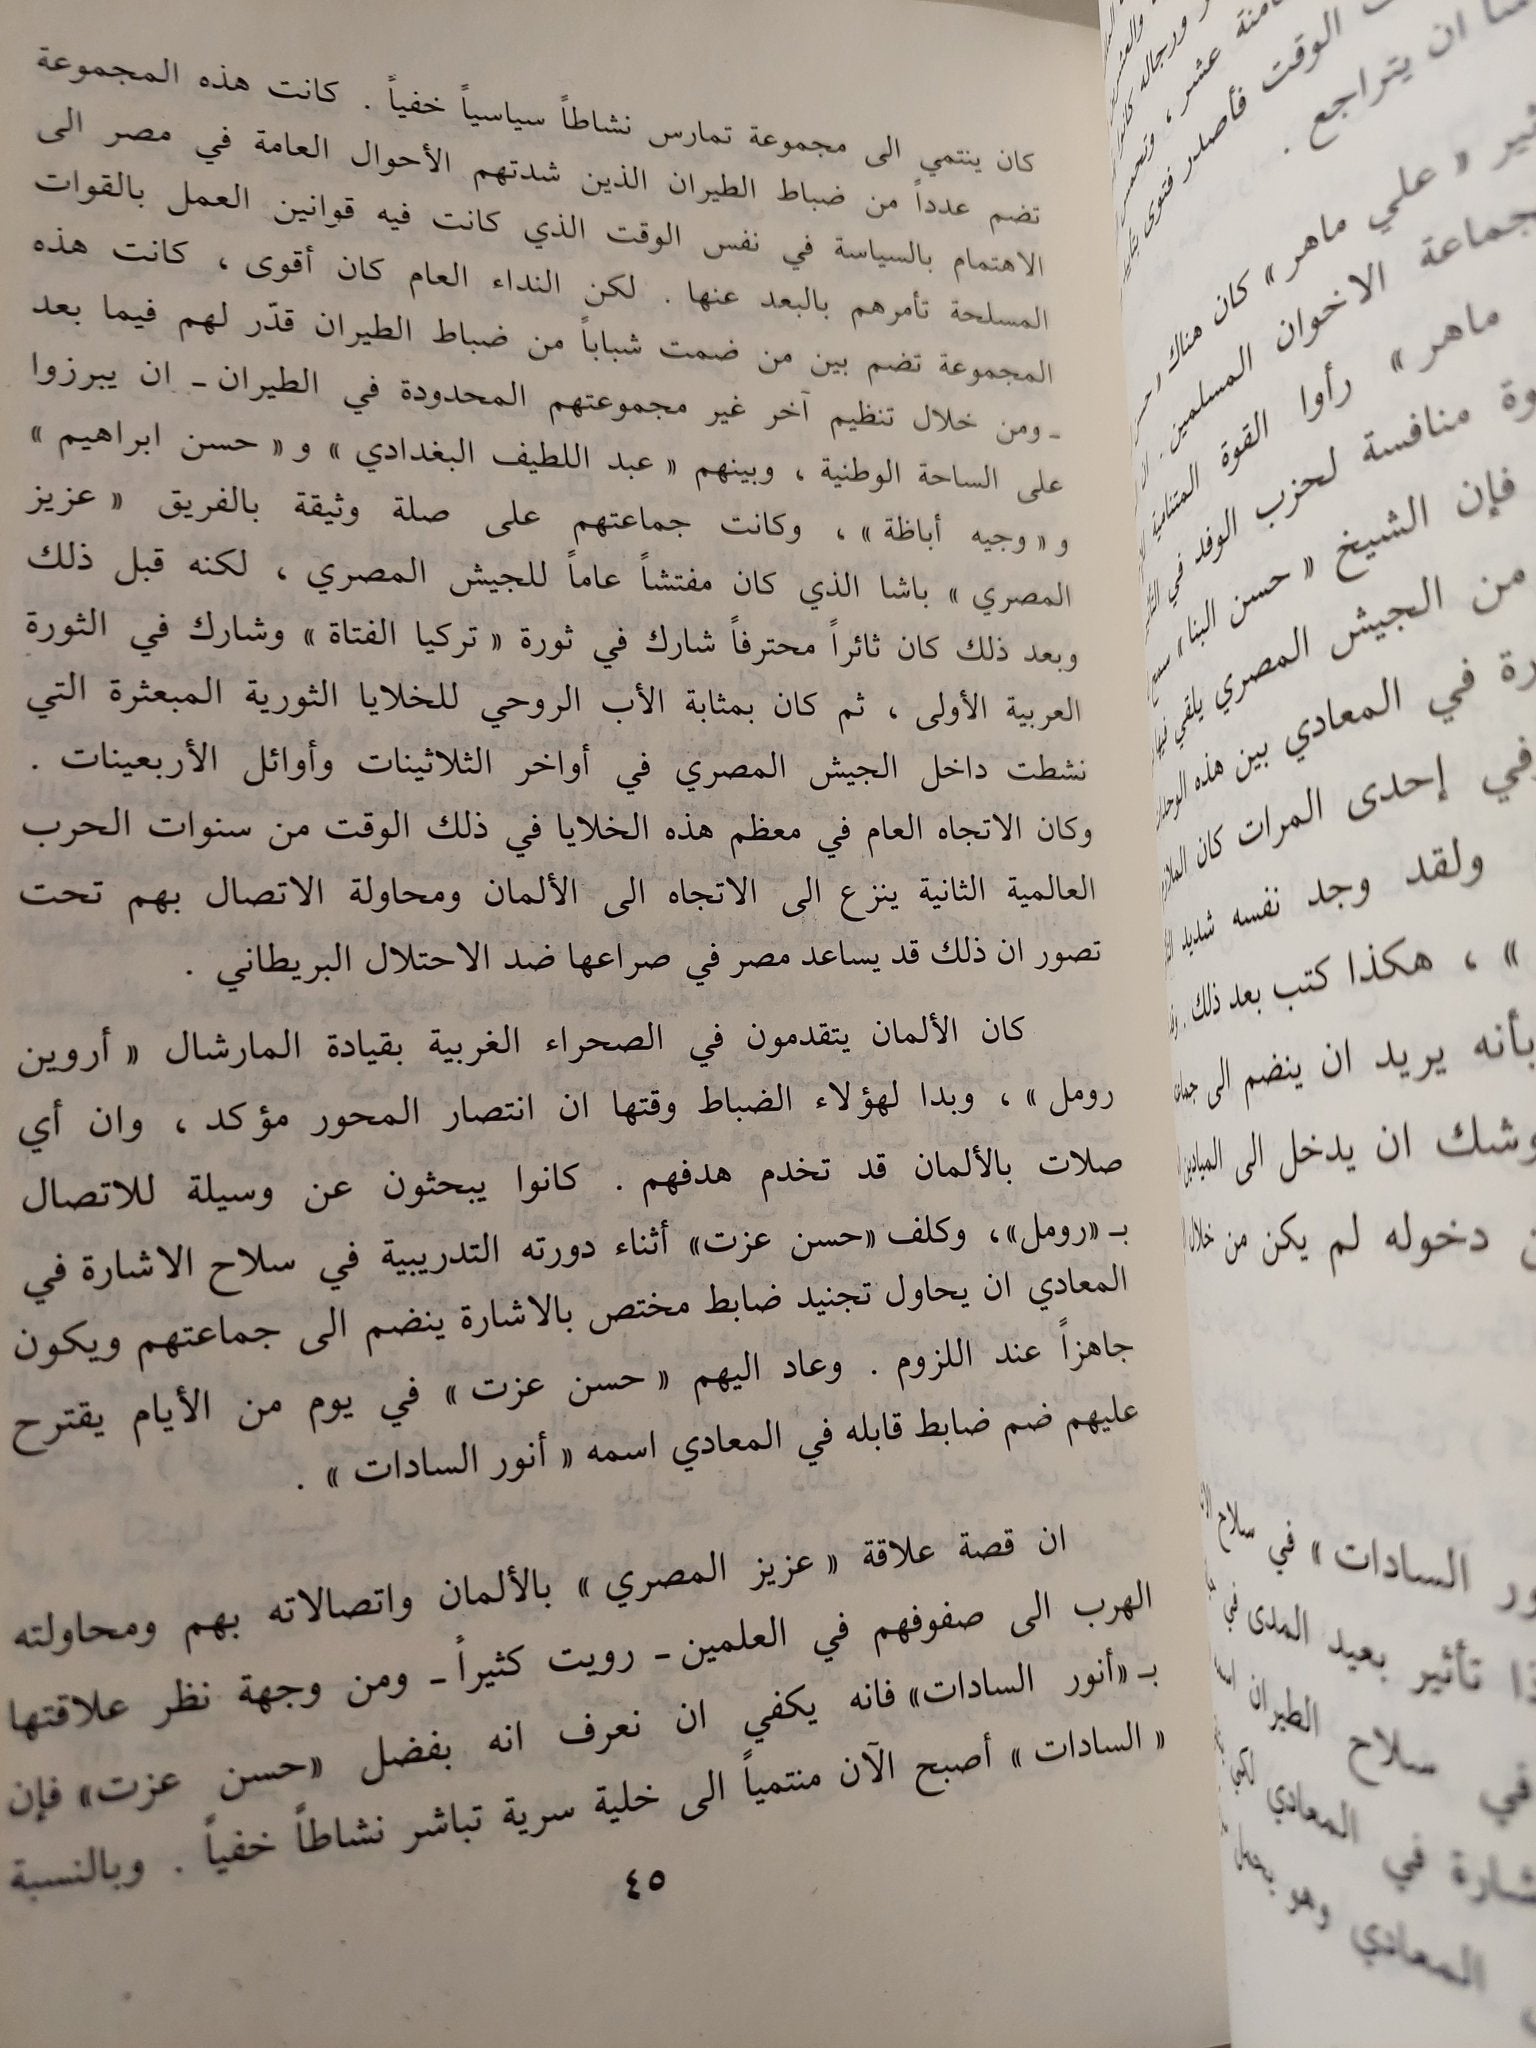 كان ينتمي الى مجموعة تمارس نشاطاً سياسياً خفياً . كانت هذه المجموعة
تضم عدداً من ضباط الطيران الذين شدتهم الأحوال العامة في مصر الى
الاهتمام بالسياسة في نفس الوقت الذي كانت فيه قوانين العمل بالقوات
المسلحة تأمرهم بالبعد عنها . لكن النداء العام كان أقوى ، كانت هذه
المجموعة تضم بين من ضمت شباباً من ضباط الطيران قدّر لهم فيما بعد
ـ ومن خلال تنظيم آخر غير مجموعتهم المحدودة في الطيران ـ ان يبرزوا
على الساحة الوطنية ، وبينهم « عبد اللطيف البغدادي » و « حسن ابراهيم »
و « وجيه أباظة » ، وكانت جماعتهم على صلة وثيقة بالفريق « عزيز
المصري » باشا الذي كان مفتشاً عاماً للجيش المصري ، لكنه قبل ذلك
وبعد ذلك كان ثائراً محترفاً شارك في ثورة « تركيا الفتاة » وشارك في الثورة
العربية الأولى ، ثم كان بمثابة الأب الروحي للخلايا الثورية المبعثرة التي
نشطت داخل الجيش المصري في أواخر الثلاثينات وأوائل الأربعينات .
وكان الاتجاه العام في معظم هذه الخلايا في ذلك الوقت من سنوات الحرب
العالمية الثانية ينزع الى الاتجاه الى الألمان ومحاولة الاتصال بهم تحت
تصور ان ذلك قد يساعد مصر في صراعها ضد الاحتلال البريطاني .
كان الألمان يتقدمون في الصحراء الغربية بقيادة المارشال « أروين
رومل » ، وبدا لهؤلاء الضباط وقتها ان انتصار المحور مؤكد ، وان أي
صلات بالألمان قد تخدم هدفهم . كانوا يبحثون عن وسيلة للاتصال
بـ «رومل»، وكلف «حسن عزت» أثناء دورته التدريبية في سلاح الاشارة في
المعادي ان يحاول تجنيد ضابط مختص بالاشارة ينضم الى جماعتهم ويكون
جاهزاً عند اللزوم . وعاد اليهم « حسن عزت » في يوم من الأيام يقترح
عليهم ضم ضابط قابله في المعادي اسمه « أنور السادات » .
ان قصة علاقة « عزيز المصري » بالألمان واتصالاته بهم ومحاولته
الهرب الى صفوفهم في العلمين ـ رويت كثيراً ـ ومن وجهة نظر علاقتها
بـ «أنور السادات» فانه يكفي ان نعرف انه بفضل «حسن عزت» فإن
« السادات » أصبح الآن منتمياً الى خلية سرية تباشر نشاطاً خفياً . وبالنسبة
٤٥
الوقت فأصدر فتوى
ان يتراجع .
« علي ماهر » كان هناك
جماعة الاخوان المسلمين .
ماهر » رأوا القوة المتنامية
منافسة لحزب الوفد في
فإن الشيخ « حسن البنا »
من الجيش المصري يلقي
في المعادي بين هذه
في إحدى المرات كان
ولقد وجد نفسه شديد
» ، هكذا كتب بعد ذلك .
بأنه يريد ان ينضم الى
وشك ان يدخل الى
دخوله لم يكن من خلال
السادات » في سلاح
تأثير بعيد المدى في
في سلاح الطيران
في المعادي لكي
المعادي وهو